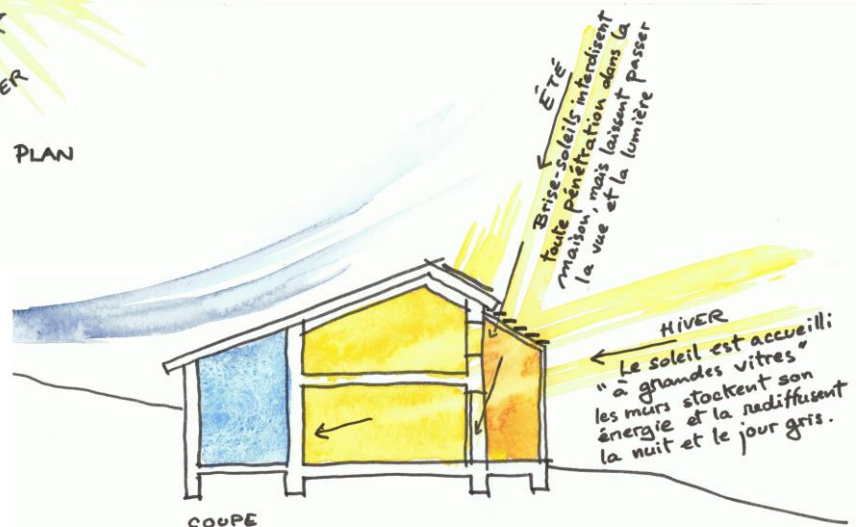 PLAN
ÉTÉ
Brise-soleils interdisent
toute pénétration dans la
maison, mais laissent passer
la vue et la lumière
HIVER
Le soleil est accueilli
"à grandes vitres"
les murs stockent son
énergie et la rediffusent
la nuit et le jour gris.
COUPE